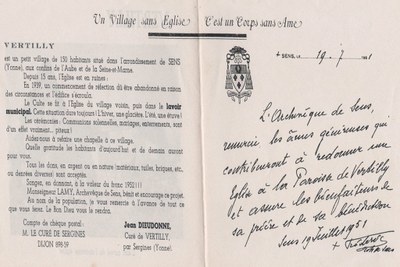 Un Village sans Eglise C'est un Corps sans Ame
VERTILLY
est un petit village de 150 habitants situé dans l'arrondissement de SENS
(Yonne), aux confins de l'Aube et de la Seine-et-Marne.
Depuis 15 ans, l'Eglise est en ruines :
En 1939, un commencement de réfection dû être abandonné en raison
des circonstances et l'édifice s'écroula.
Le Culte se fit à l'Eglise du village voisin, puis dans le lavoir
municipal. Cette situation dure toujours ! L'hiver, une glacière. L'été, une étuve !
Les cérémonies : Communion solennelles, mariages, enterrements, sont
d'un effet vraiment... piteux !
Aidez-nous à refaire une chapelle à ce village.
Quelle gratitude les habitants d'aujourd'hui et de demain auront
pour vous.
Tous les dons, en argent ou en nature (matériaux, tuiles, briques, etc.,
ou denrées diverses) sont acceptés.
Songez, en donnant, à la vanité du franc 1952 (!)
Monseigneur LAMY, Archevêque de Sens, bénit et encourage ce projet.
Au nom de la population, je vous remercie à l'avance de tout ce
que vous ferez. Le Bon Dieu vous le rendra.
Compte de chèque postal :
M. LE CURE DE SERGINES
DIJON 698-59
Jean DIEUDONNE,
Curé de VERTILLY,
par Sergines (Yonne).
+ SENS, le 19 - 7 1951
L'Archevêque de Sens,
remercie les âmes généreuses qui
contribueront à redonner une
Eglise à la Paroisse de Vertilly
et assure les bienfaiteurs de
sa prière et de sa bénédiction
Sens 19 Juillet 1951